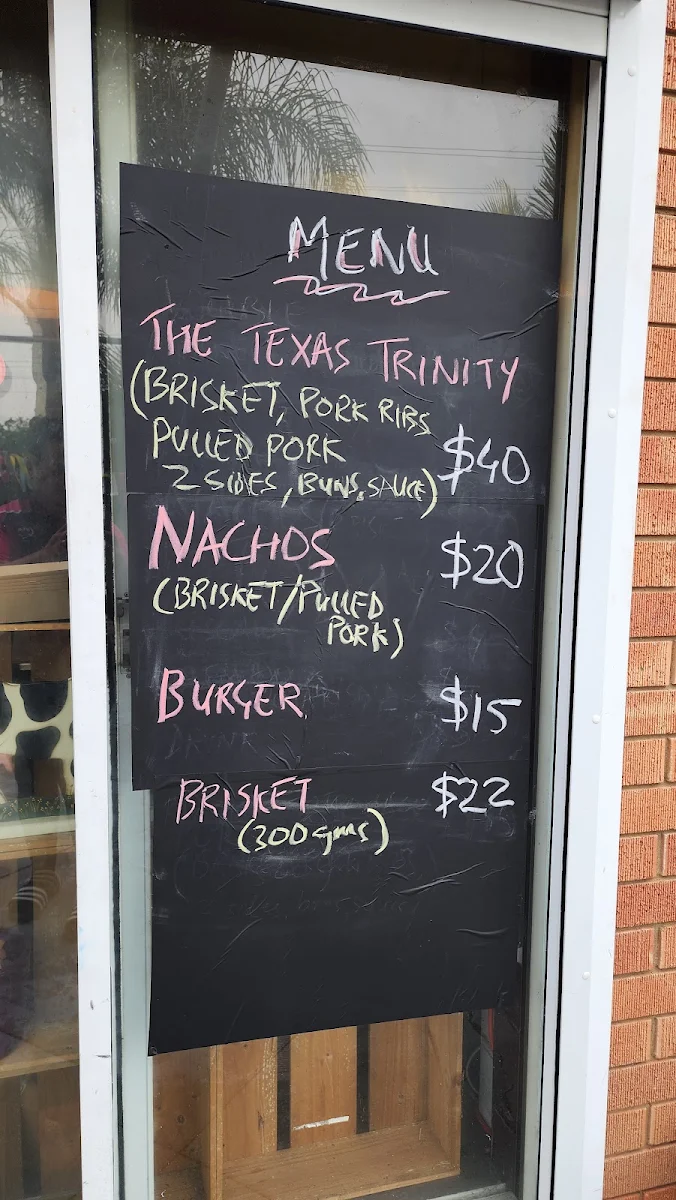 MENU
THE TEXAS TRINITY
(BRISKET, PORK RIBS
PULLED PORK
2 SIDES, BUNS, SAUCE) $40
NACHOS $20
(BRISKET/PULLED
PORK)
BURGER $15
BRISKET $22
(300gms)